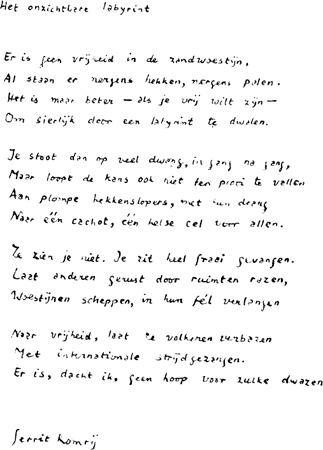 Het onzichtbare labyrint
Er is geen vrijheid in de zandwoestijn,
Al staan er nergens hekken, nergens palen.
Het is maar beter – als je vrij wilt zijn –
Om sierlijk door een labyrint te dwalen.
Je stoot dan op veel dwang, in gang na gang,
Maar loopt de kans ook niet ten prooi te vallen
Aan plompe hekkenslopers, met hun drang
Naar één cachot, één helse cel voor allen.
Ze zien je niet. Je zit heel fraai gevangen.
Laat anderen gerust door ruimten razen,
Woestijnen scheppen, in hun fél verlangen
Naar vrijheid, laat ze volkeren verbazen
Met internationale strijdgezangen.
Er is, dacht ik, geen hoop voor zulke dwazen
Gerrit Komrij